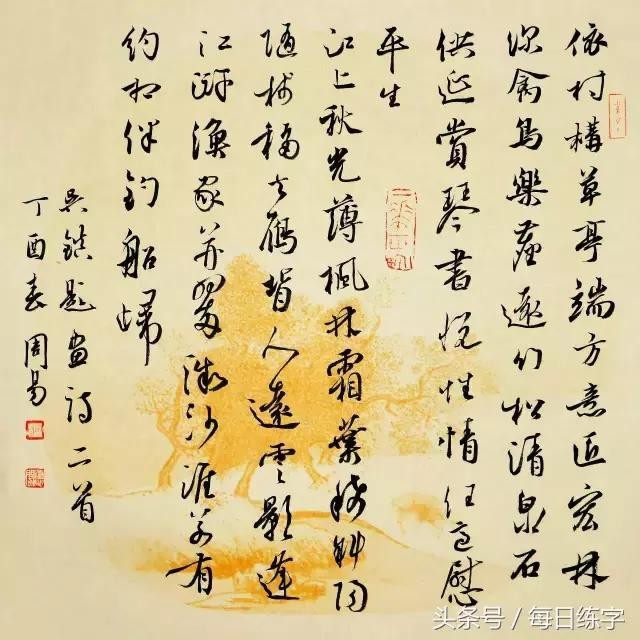 依村構草亭端方意匠宏林
深禽鳥樂塵遠竹松清泉石
供延賞琴書悅性情任適慰
平生
江上秋光薄楓林霜葉稀斜陽
隨樹去雁背人遠雲影連
江滸漁家並翠微沙涯若有
約相伴釣船歸
吳鎮題畫詩二首
丁酉春周易
头条号 / 每日练字